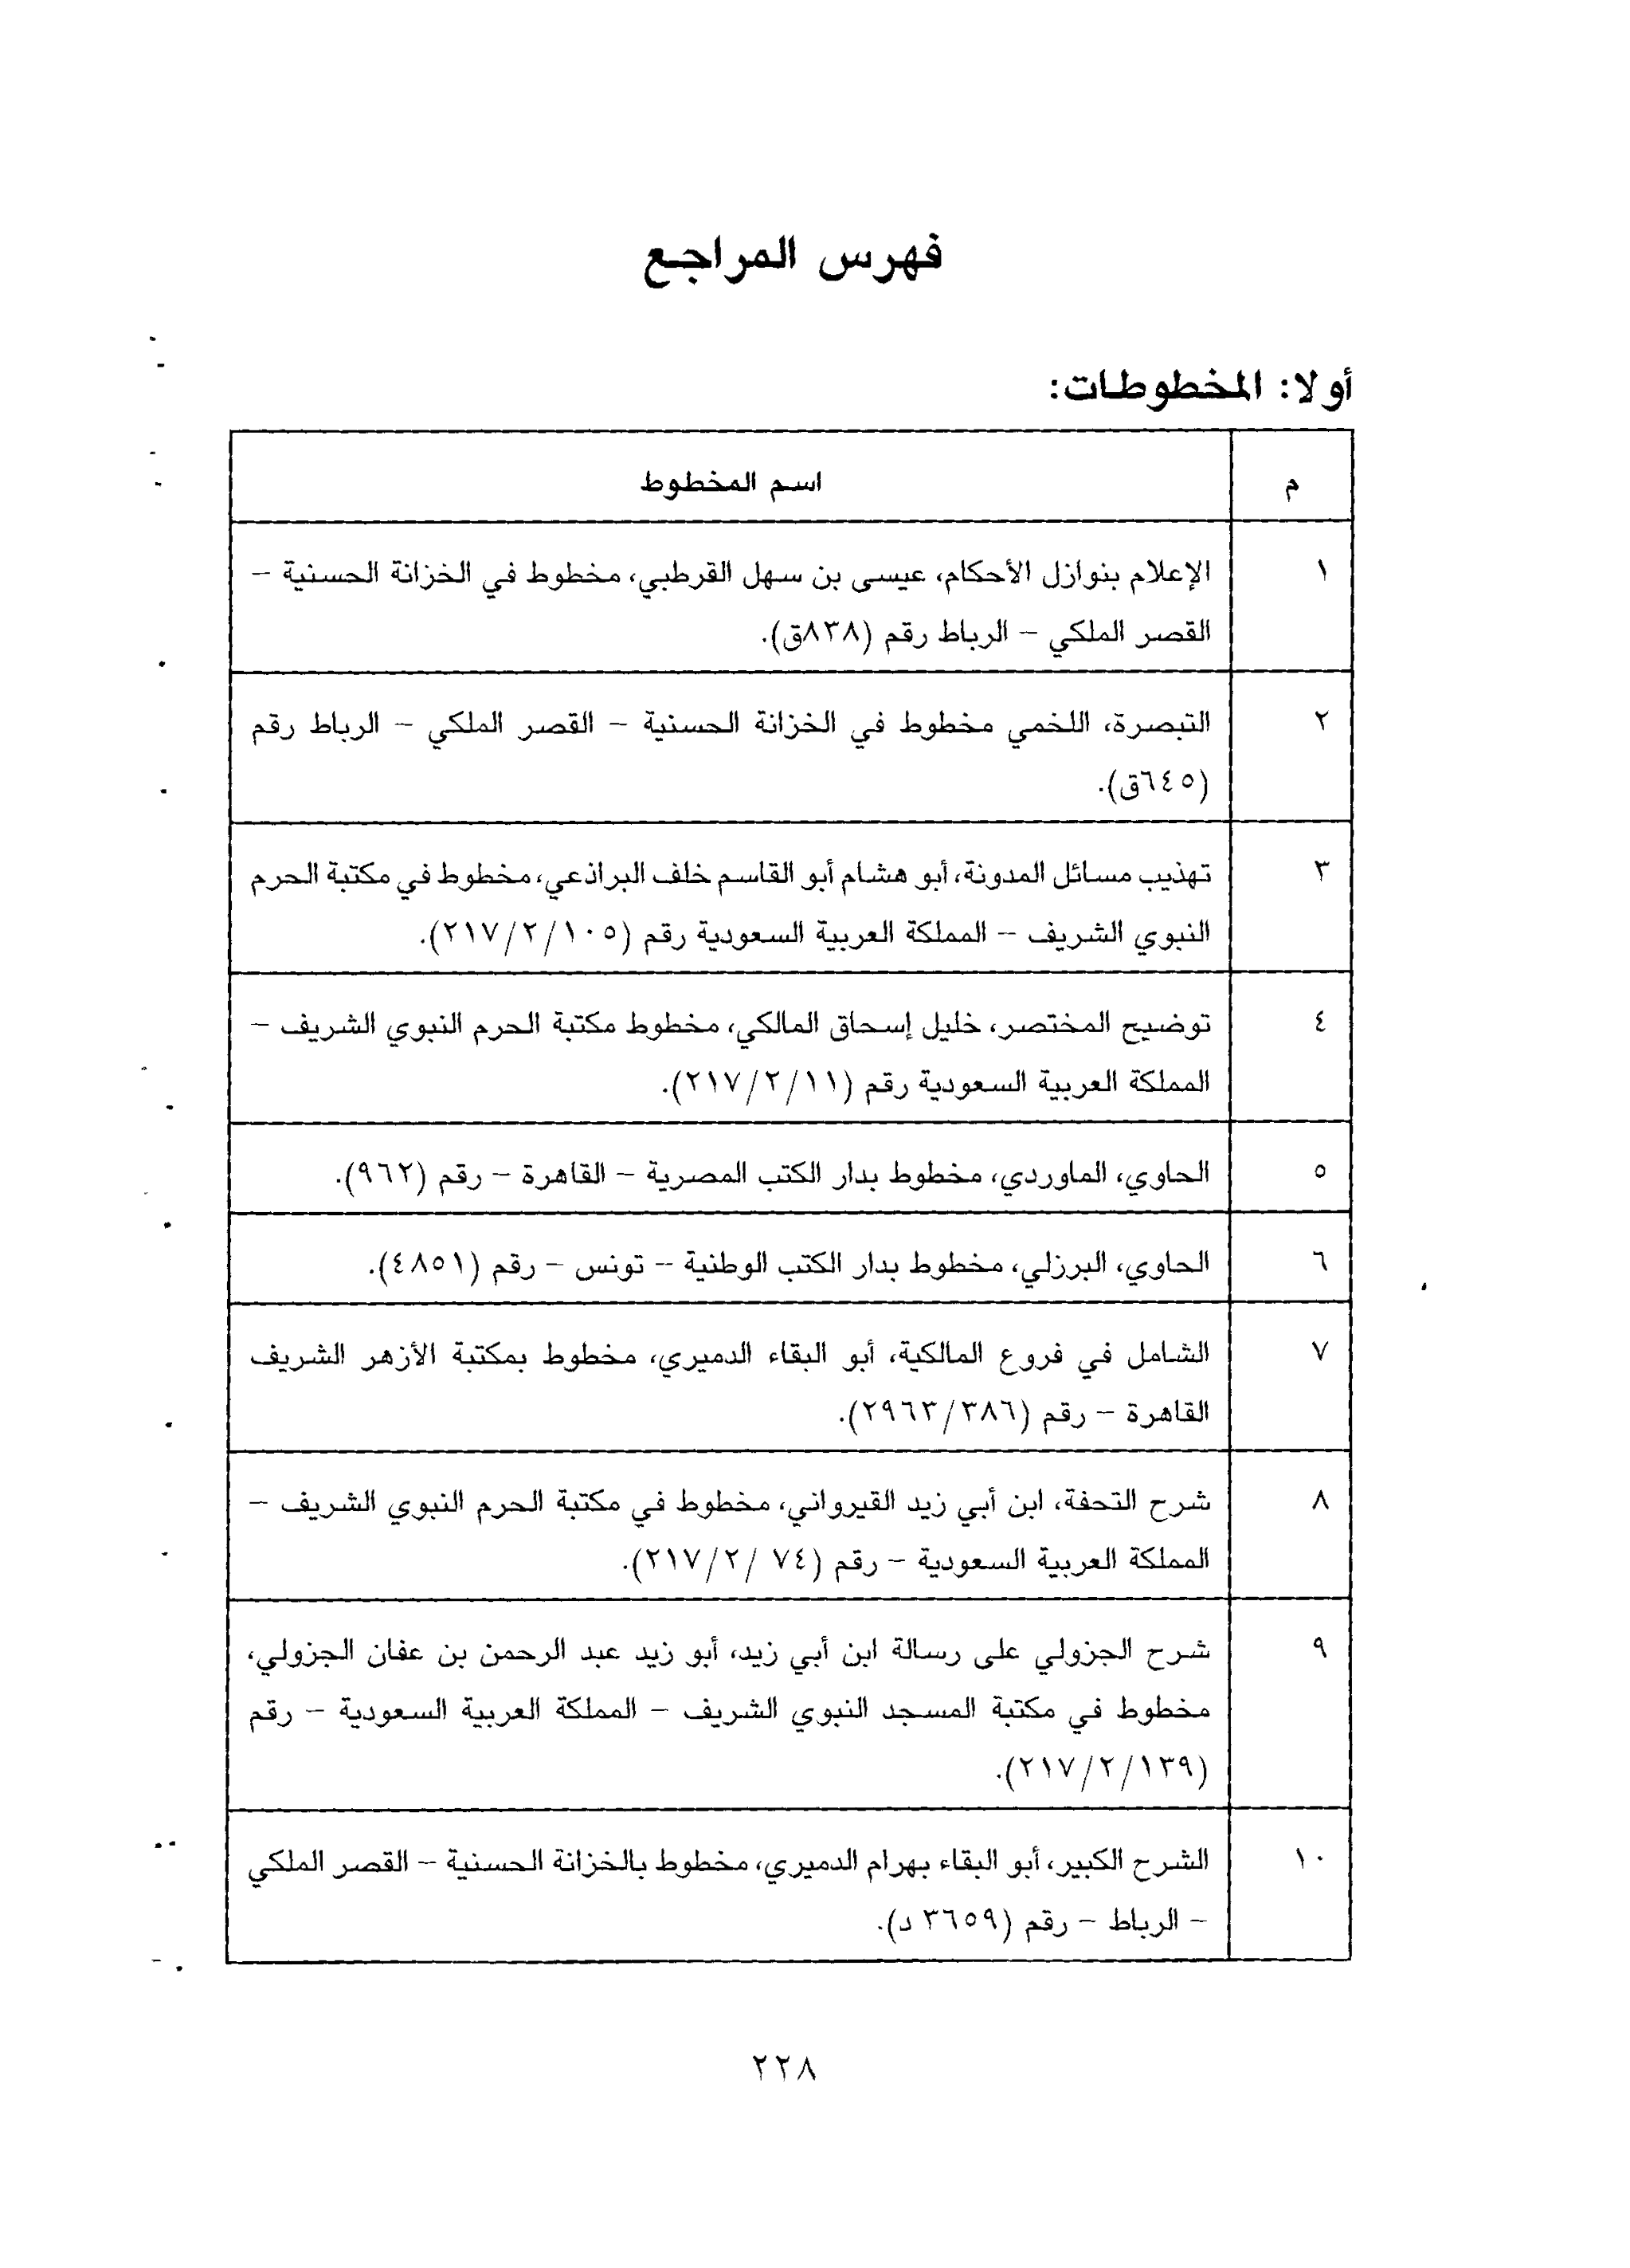 فهرس المراجع
أولا: المخطوطات:
م
اسم المخطوط
١
الإعلام بنوازل الأحكام، عيسى بن سهل القرطبي، مخطوط في الخزانة الحسنية –
القصر الملكي – الرباط رقم (٨٣٨ق).
٢
التبصرة، اللخمي مخطوط في الخزانة الحسنية – القصر الملكي – الرباط رقم
(٦٤٥ق).
٣
تهذيب مسائل المدونة، أبو هشام أبو القاسم خلف البراذعي، مخطوط في مكتبة الحرم
النبوي الشريف – المملكة العربية السعودية رقم (٢١٧/٢/١٠٥).
٤
توضيح المختصر، خليل إسحاق المالكي، مخطوط مكتبة الحرم النبوي الشريف –
المملكة العربية السعودية رقم (٢١٧/٢/١١).
٥
الحاوي، الماوردي، مخطوط بدار الكتب المصرية – القاهرة – رقم (٩٦٢).
٦
الحاوي، البرزلي، مخطوط بدار الكتب الوطنية – تونس – رقم (٤٨٥١).
٧
الشامل في فروع المالكية، أبو البقاء الدميري، مخطوط بمكتبة الأزهر الشريف
القاهرة – رقم (٢٩٦٣/٣٨٦).
٨
شرح التحفة، ابن أبي زيد القيرواني، مخطوط في مكتبة الحرم النبوي الشريف –
المملكة العربية السعودية – رقم (٢١٧/٢/ ٧٤).
٩
شرح الجزولي على رسالة ابن أبي زيد، أبو زيد عبد الرحمن بن عفان الجزولي،
مخطوط في مكتبة المسجد النبوي الشريف – المملكة العربية السعودية – رقم
(٢١٧/٢/١٣٩).
١٠
الشرح الكبير، أبو البقاء بهرام الدميري، مخطوط بالخزانة الحسنية – القصر الملكي
– الرباط – رقم (٣٦٥٩ د).
٢٢٨